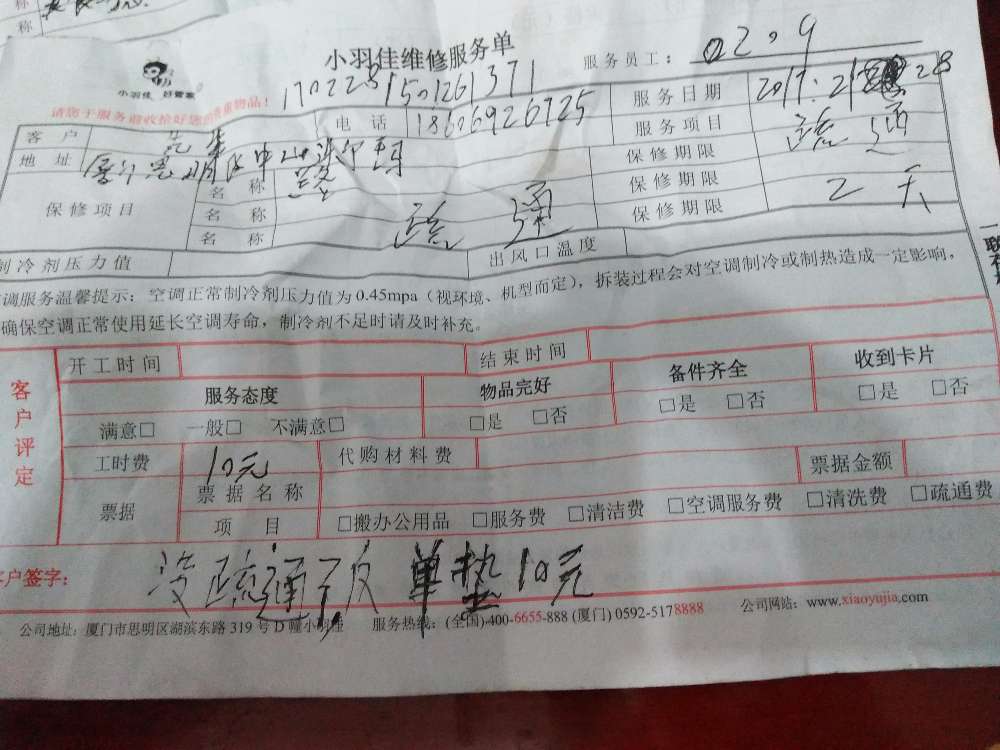 小羽佳维修服务单
小羽佳 好管家
服务员工: 02.9
请您于服务前收拾好您的贵重物品!
1702281501261371
客户 电话 18606926725 服务日期 2017.2 28
地址 服务项目 疏通
保修项目 名称 保修期限
名称 保修期限
名称 疏通 保修期限 2天
制冷剂压力值 出风口温度
调服务温馨提示: 空调正常制冷剂压力值为0.45mpa (视环境、机型而定), 拆装过程会对空调制冷或制热造成一定影响,
确保空调正常使用延长空调寿命, 制冷剂不足时请及时补充。
客户评定
开工时间 结束时间
服务态度 物品完好 备件齐全 收到卡片
满意□ 一般□ 不满意□ □是 □否 □是 □否 □是 □否
工时费 10元 代购材料费 票据金额
票据 票据名称
项目 □搬办公用品 □服务费 □清洁费 □空调服务费 □清洗费 □疏通费
客户签字: 没疏通 单垫10元
公司地址: 厦门市思明区湖滨东路319号D幢小羽佳 服务热线: (全国)400-6655-888 (厦门) 0592-5178888 公司网站: www.xiaoyujia.com